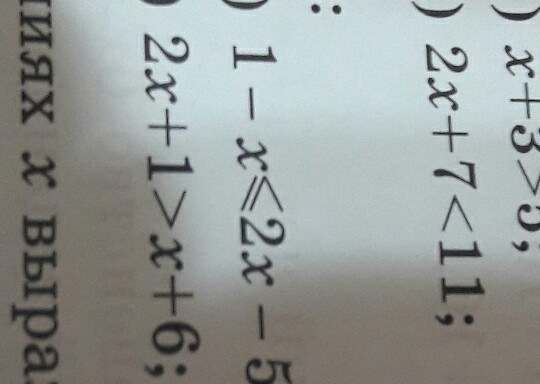 ) x+3>5;
) 2x+7<11;
:
) 1 − x⩽2x − 5
) 2x+1>x+6;
иях x выра